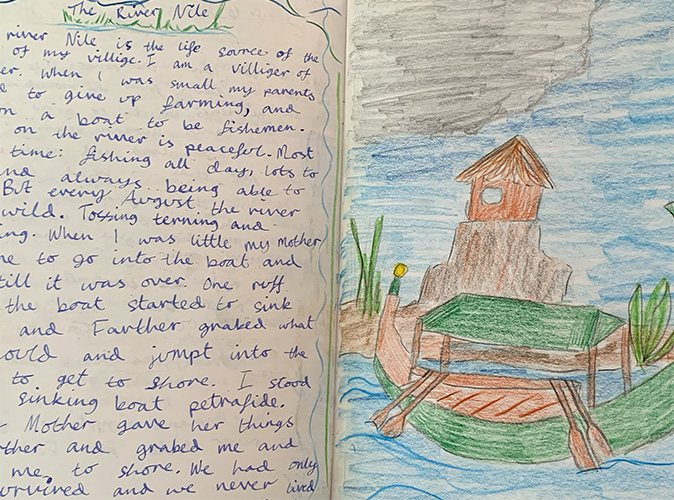 The River Nile
river Nile is the life source of the
of my villige. I am a villiger of
er. When I was small my parents
d to give up farming, and
on a boat to be fishemen.
on the river is peaceful. Most
time: fishing all day, lots to
and always being able to
But every August the river
wild. Tossing terning and
ing. When I was little my mother
me to go into the boat and
till it was over. One ruff
the boat started to sink
and Farther grabed what
ould and jumpt into the
to get to shore. I stood
sinking boat petrafide.
Mother gave her things
rther and grabed me and
me to shore. We had only
urvired and we never lived